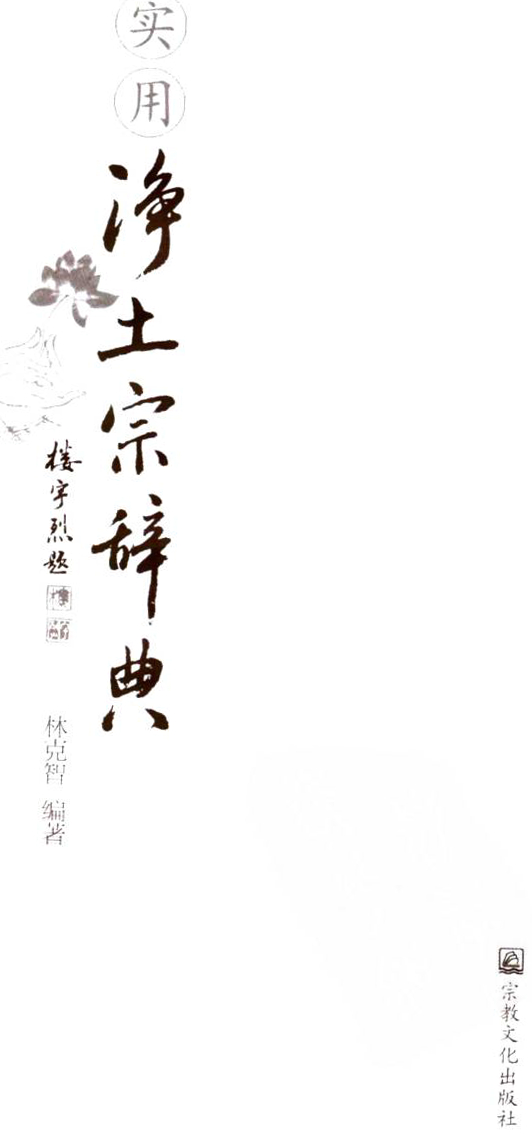 实用
净土宗辞典
楼宇烈题
林克智 编著
宗教文化出版社